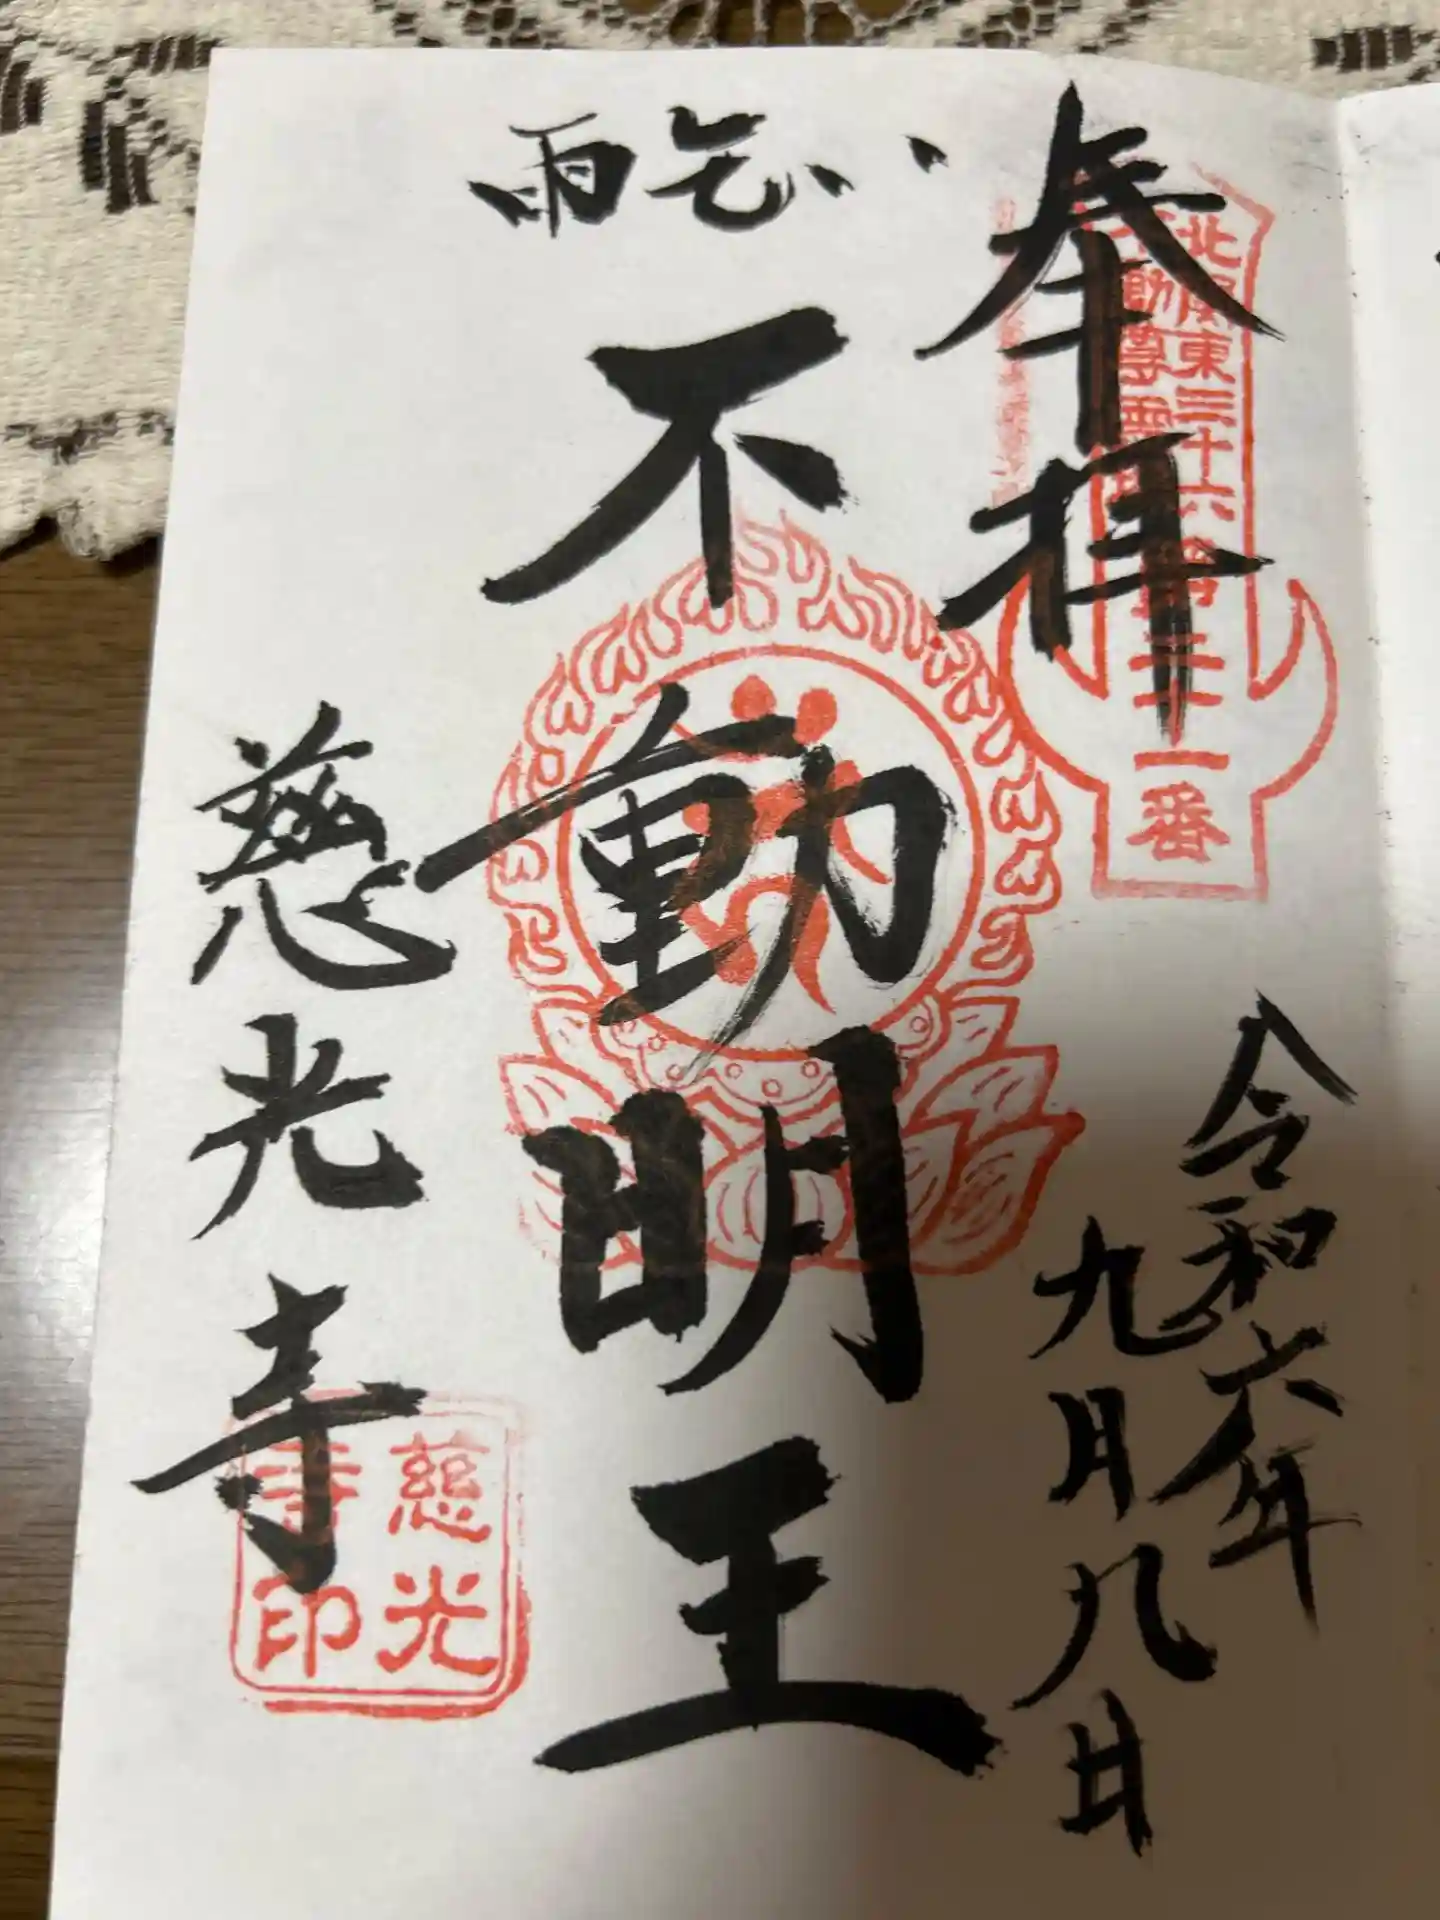 奉拝
北関東三十六
不動尊霊場
第三十一番
令和六年
九月八日
雨乞い
不動明王
慈光寺
慈光
寺印